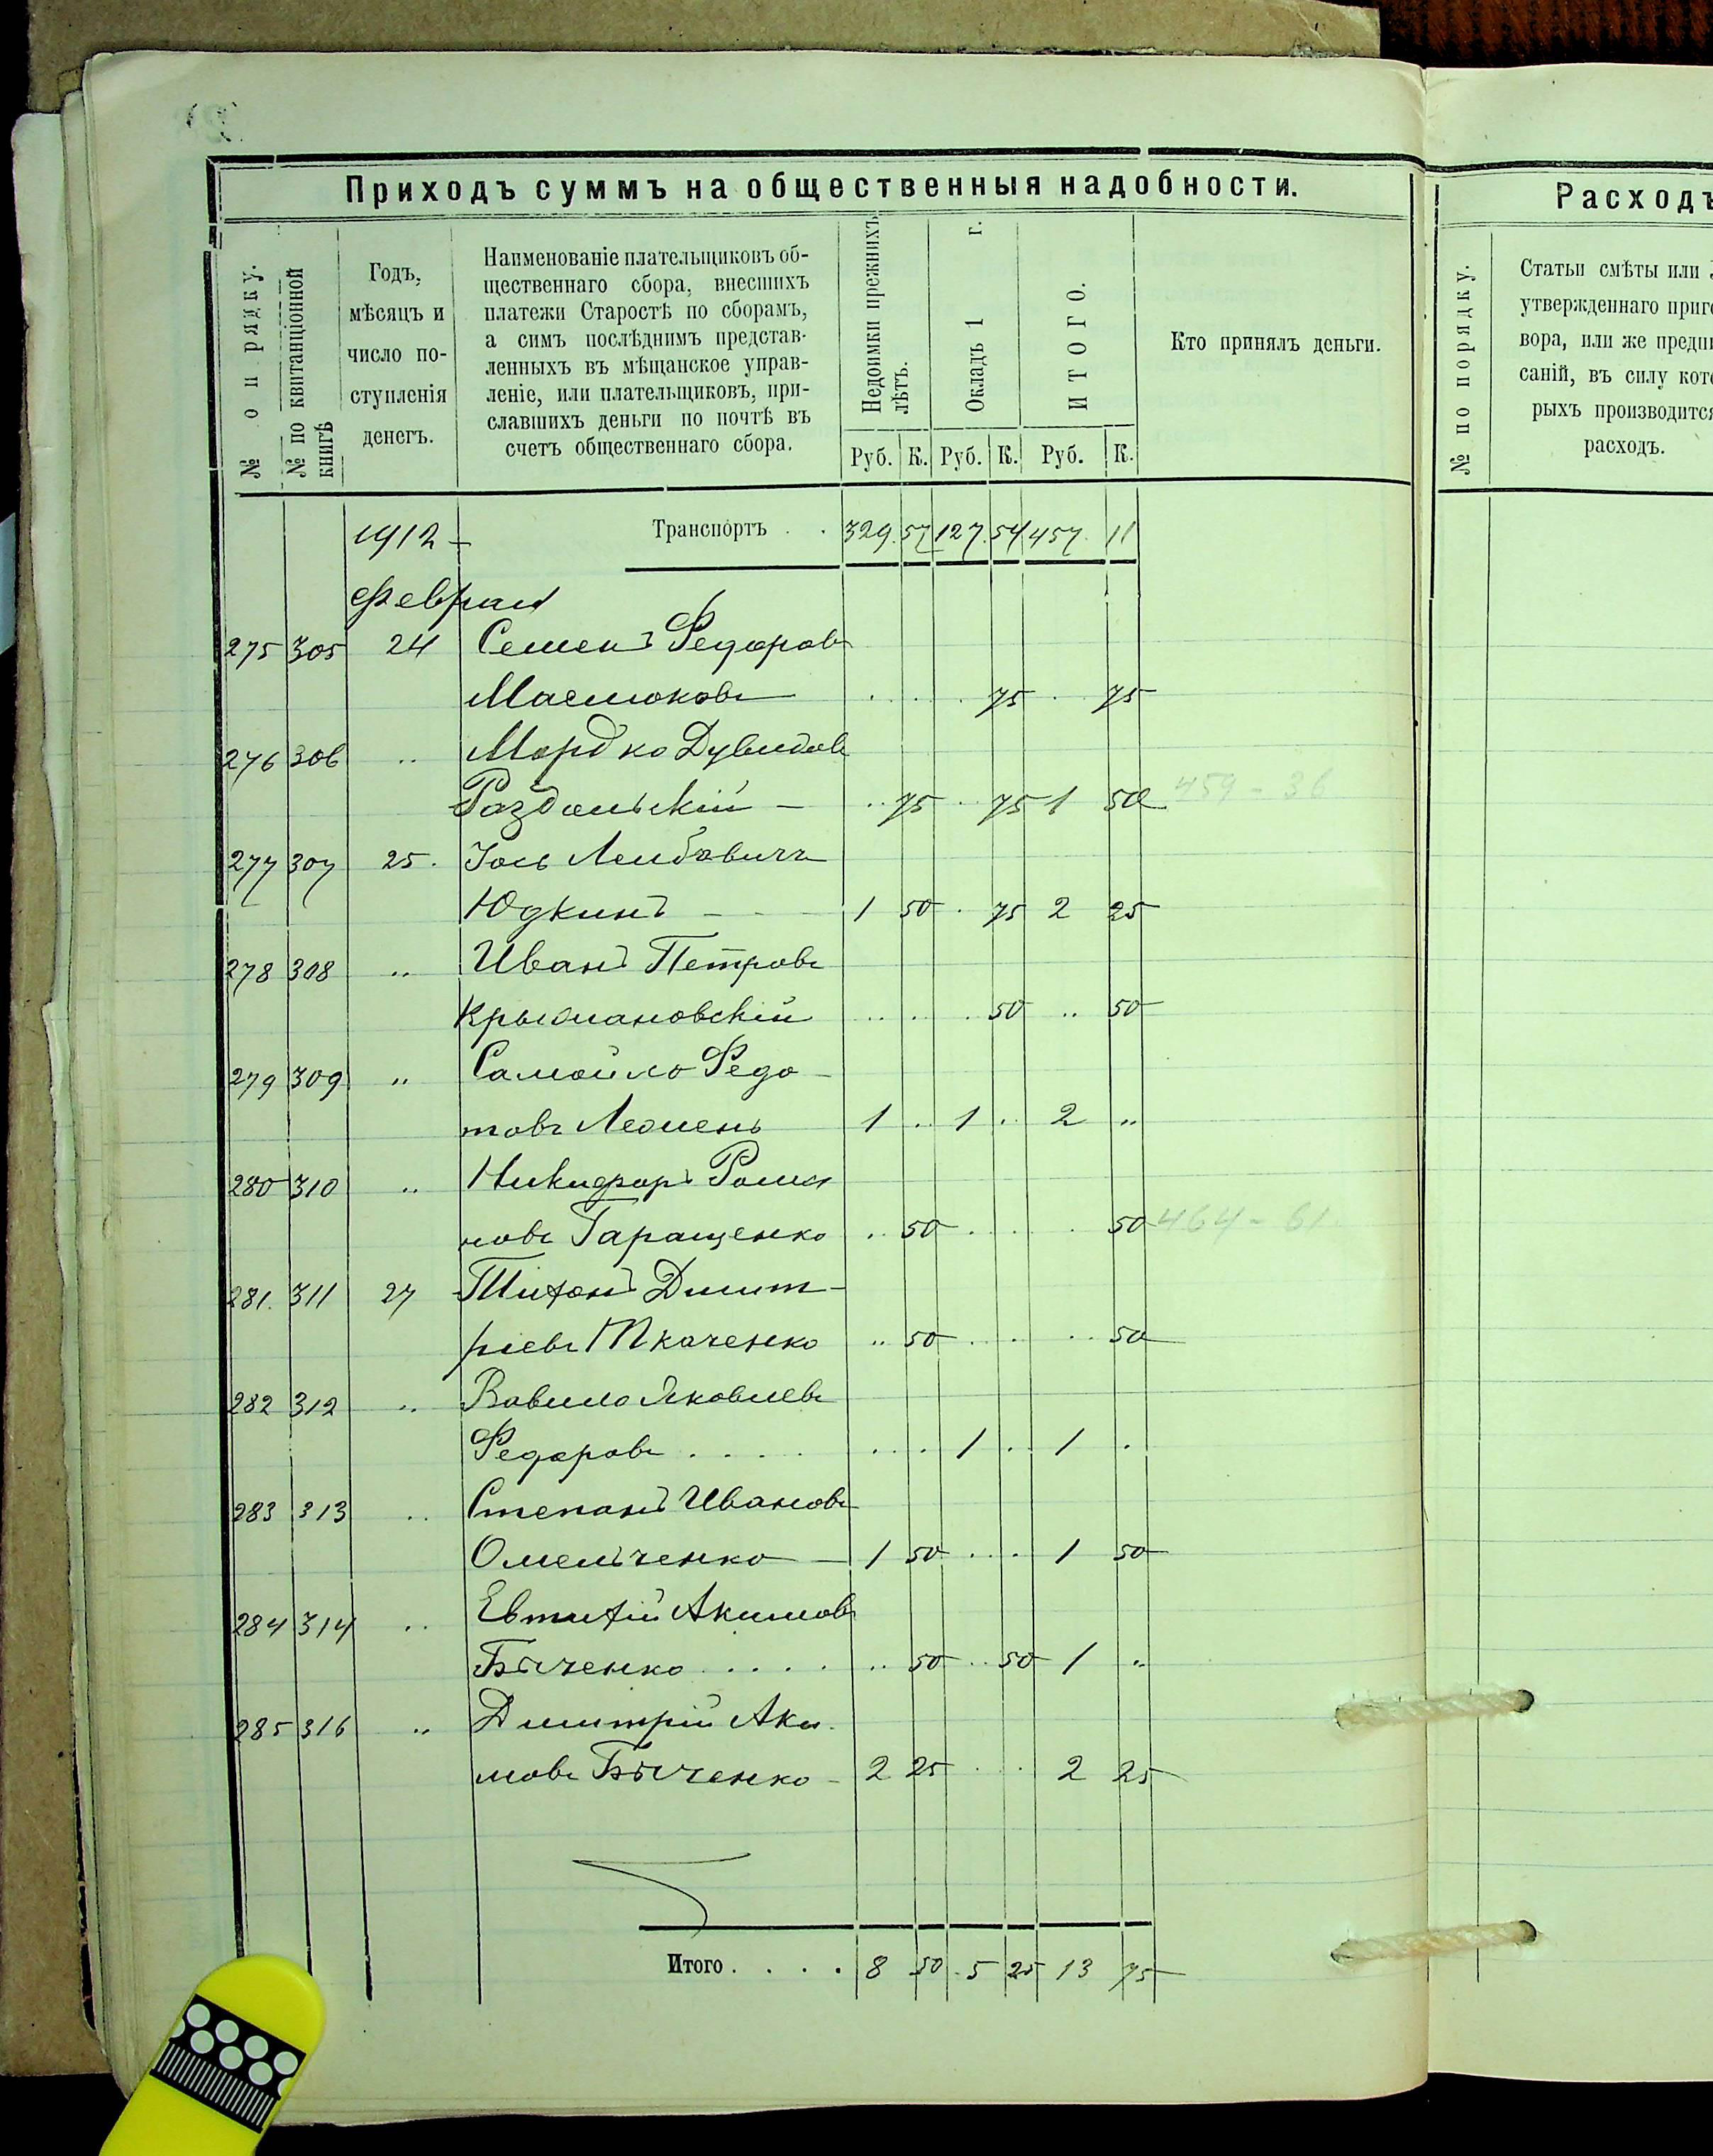 Приходъ суммъ на общественныя надобности.
№ по рядку.
№ по квитанціонной книгѣ
Годъ, мѣсяцъ и число поступленія денегъ.
Наименованіе плательщиковъ об-
щественнаго сбора, внесшихъ
платежи Старостѣ по сборамъ,
а симъ послѣднимъ представ-
ленныхъ въ мѣщанское управ-
леніе, или плательщиковъ, при-
славшихъ деньги по почтѣ въ
счетъ общественнаго сбора.
Недоимки прежнихъ лѣтъ.
Окладъ 1 г.
ИТОГО.
Кто принялъ деньги.
Руб. К. Руб. К. Руб. К.
1912 Транспортъ . . 329 57 127 54 457 11
Февраля
275 305 24 Семенъ Федоровъ
Маслюковъ 75 75
276 306 " Мордко Дувидовъ
Раздольскій - 75 75 1 50 459-36
277 307 25. Іось Лейбовичъ
Юдкинъ 1 50 75 2 25
278 308 " Иванъ Петровъ
Крыжановскій 50 50
279 309 " Самойло Федо-
товъ 1 1 2 "
280 310 " Никифоръ Рома
новъ Таращенко 50 50 464-61
281. 311 27 Тихонъ Дмит-
ріевъ Ткаченко 50 50
282 312 " Вавило Яковлевъ
Федоровъ 1 1
283 313 " Степанъ Ивановъ
Омельченко - 1 50 1 50
284 314 " Евтихій Акимовъ
Быченко 50 50 1 "
285 316 " Дмитрій Аки-
мовъ Быченко - 2 25 2 25
Итого . . . . 8 50 5 25 13 75
Расходъ
№ по порядку.
Статьи смѣты или
утвержденнаго приго
вора, или же предпи
саній, въ силу кото
рыхъ производится
расходъ.